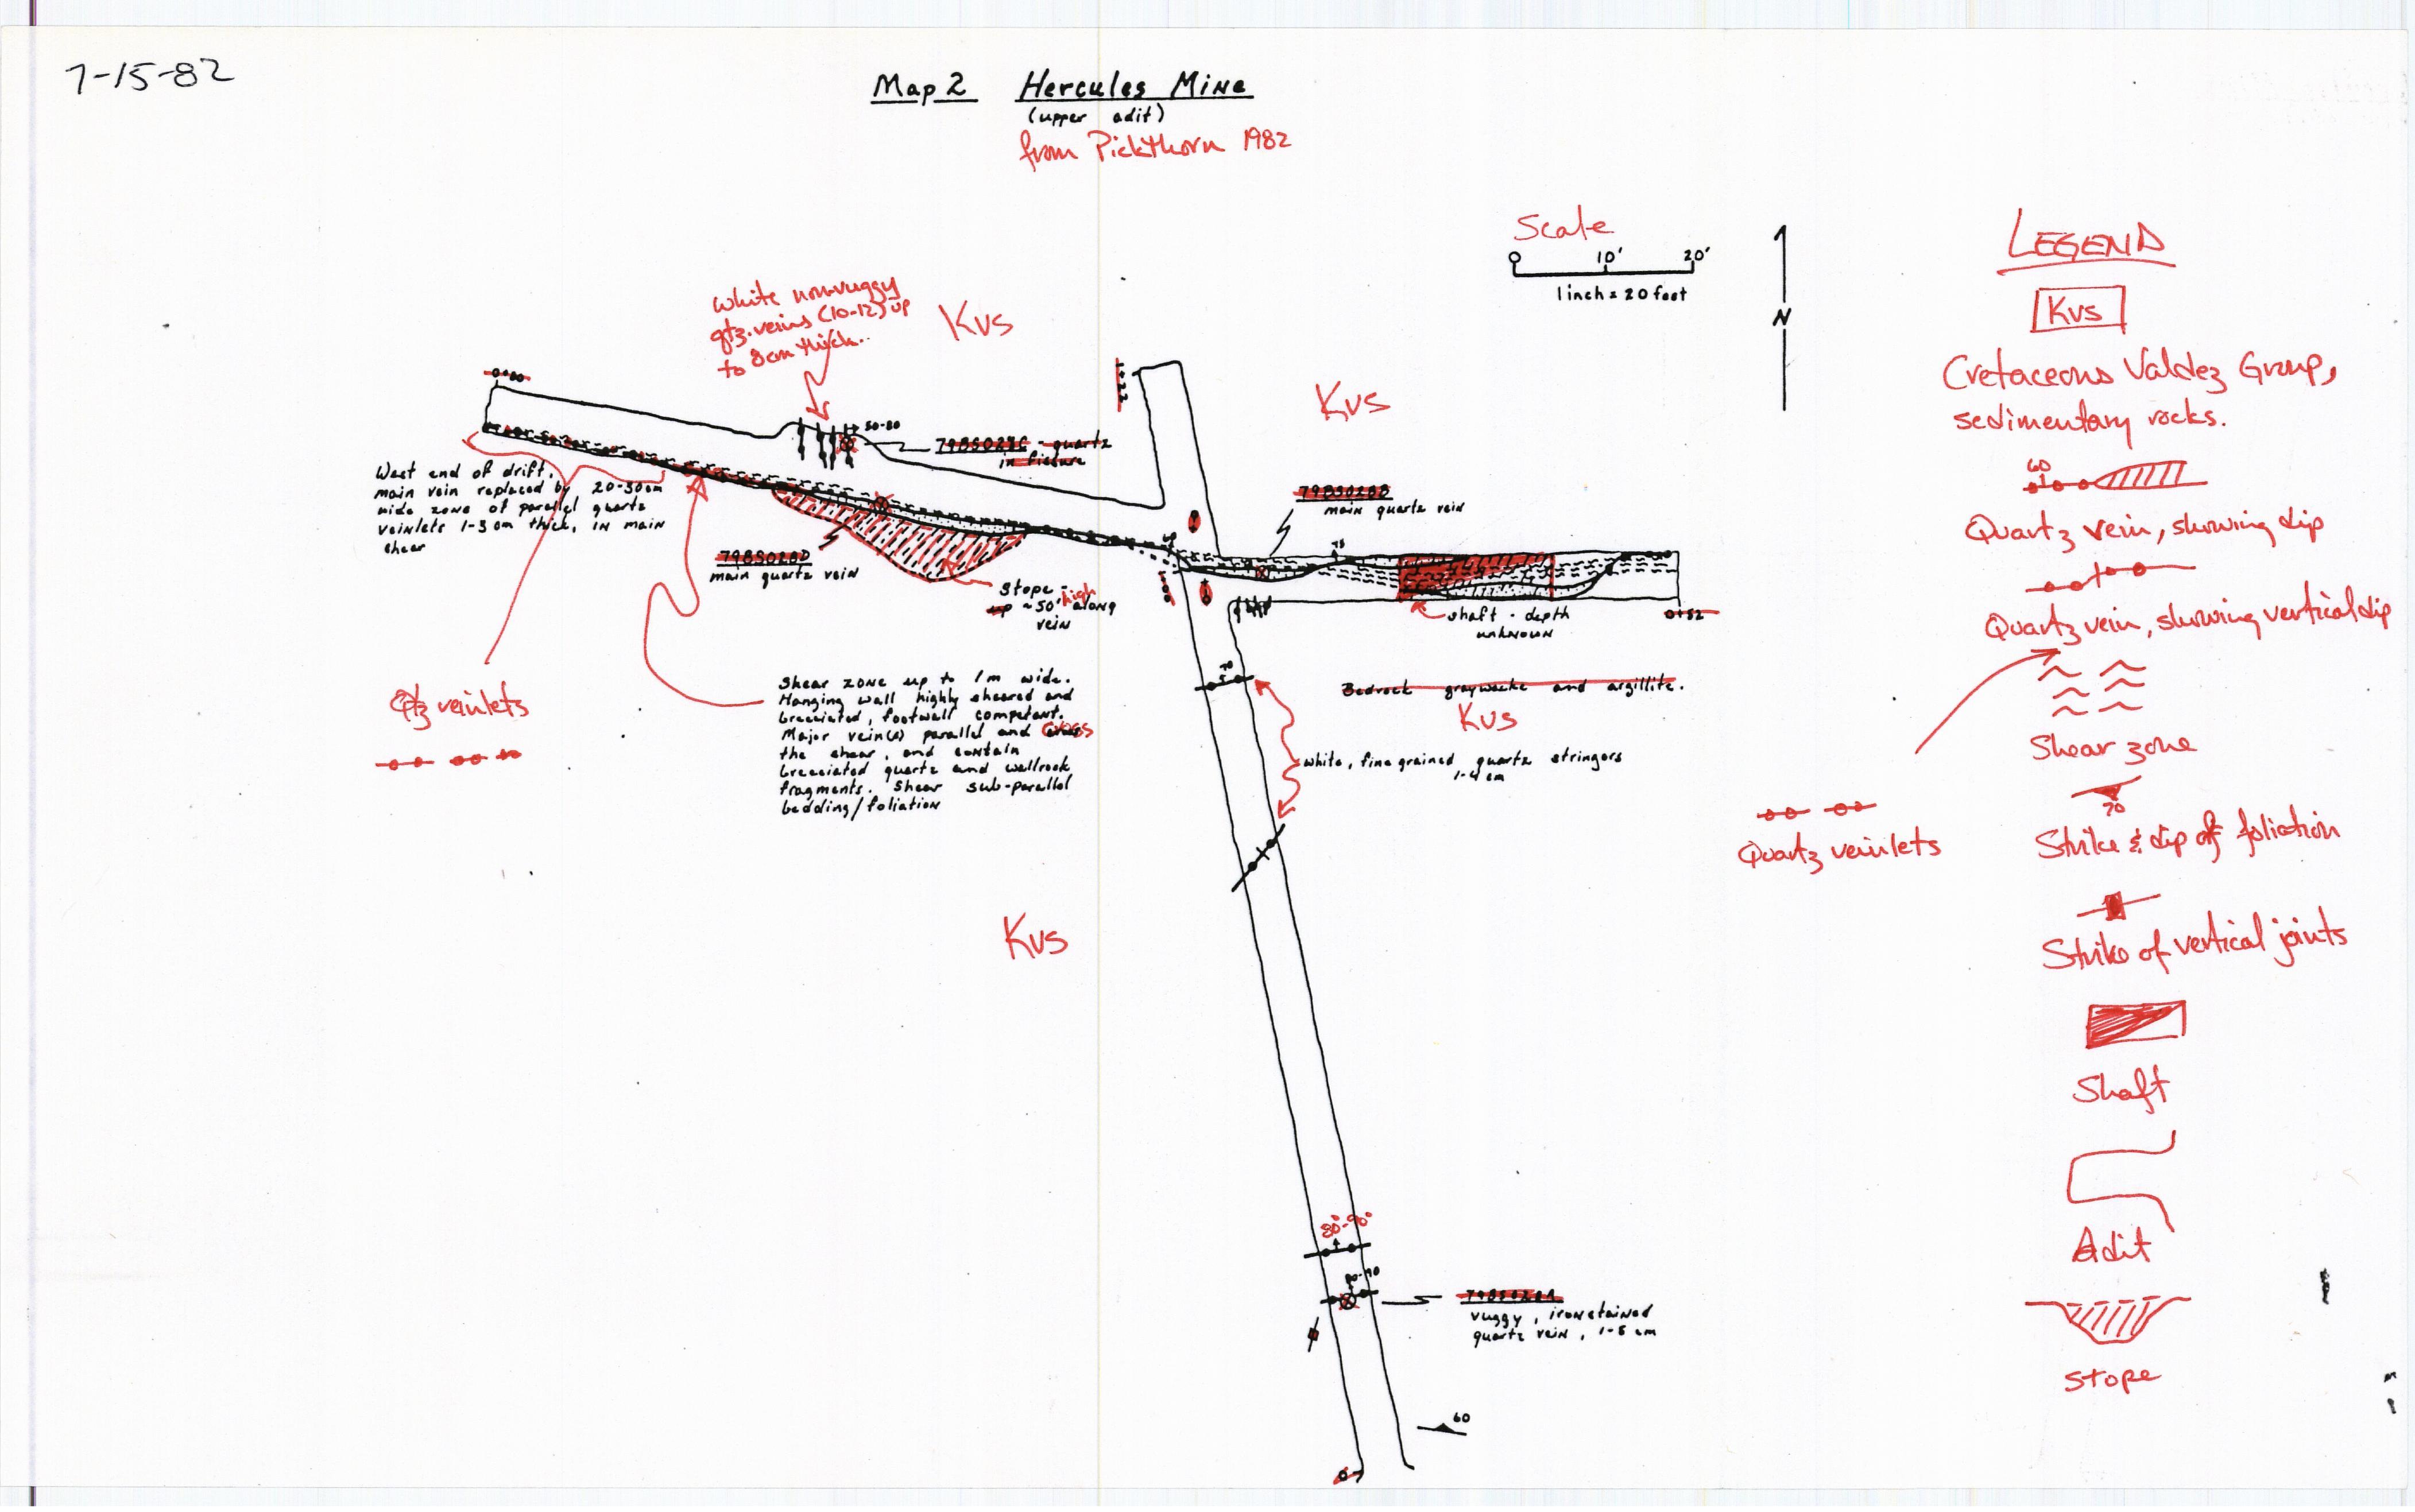 7-15-82
Map 2 Hercules Mine
(upper adit)
from Pickthorn 1982
Scale
10' 20'
1 inch = 20 feet
N
White non-vuggy
qtz. veins (10-12) up
to 8cm thick.
Kvs
Kvs
0+80
50-80
79BS028C - quartz
West end of drift.
main vein replaced by 20-30cm
wide zone of parallel quartz
veinlets 1-3 cm thick, in main
shear
79BS028B
main quartz vein
75
79BS028D
main quartz vein
stope -
up ~50' high along
vein
shaft - depth
unknown
0+52
Qtz veinlets
Shear zone up to 1m wide.
Hanging wall highly sheared and
brecciated, footwall competant.
Major vein(s) parallel and cross
the shear, and contain
brecciated quartz and wallrock
fragments. Shear sub-parallel
bedding/foliation
70
Bedrock graywacke and argillite.
Kvs
white, fine grained quartz stringers
1-4 cm
Kvs
80°-90°
80-90
79BS028A
vuggy, iron stained
quartz vein, 1-5 cm
60
LEGEND
Kvs
Cretaceous Valdez Group,
sedimentary rocks.
60
Quartz vein, showing dip
Quartz vein, showing vertical dip
Shear zone
70
Strike & dip of foliation
Quartz veinlets
Strike of vertical joints
Shaft
Adit
stope